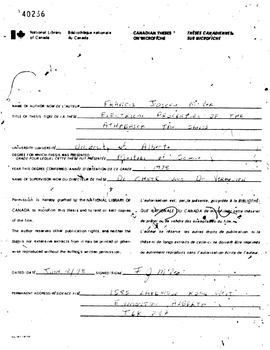 40236
National Library of Canada
Bibliothèque nationale du Canada
CANADIAN THESES ON MICROFICHE
THÈSES CANADIENNES SUR MICROFICHE
NAME OF AUTHOR/NOM DE L'AUTEUR FRANCIS JOSEPH
TITLE OF THESIS/TITRE DE LA THÈSE ELECTRICAL PROPERTIES OF THE
ATHABASCA TAR SANDS
UNIVERSITY/UNIVERSITÉ University of Alberta
DEGREE FOR WHICH THESIS WAS PRESENTED/
GRADE POUR LEQUEL CETTE THÈSE FUT PRÉSENTÉE Masters of Science
YEAR THIS DEGREE CONFERRED/ANNÉE D'OBTENTION DE CE GRADE
NAME OF SUPERVISOR/NOM DU DIRECTEUR DE THÈSE Dr and Dr
Permission is hereby granted to the NATIONAL LIBRARY OF
CANADA to microfilm this thesis and to lend or sell copies of
the film.
The author reserves other publication rights, and neither the
thesis nor extensive extracts from it may be printed or other-
wise reproduced without the author's written permission.
L'autorisation est, par la présente, accordée à la BIBLIOTHÈ-
QUE NATIONALE DU CANADA de microfilmer cette thèse et
de prêter ou de vendre des exemplaires du film.
L'auteur se réserve les autres droits de publication; ni la
thèse ni de longs extraits de celle-ci ne doivent être imprimés
ou autrement reproduits sans l'autorisation écrite de l'auteur.
DATED/DATÉ SIGNED/SIGNÉ F J
PERMANENT ADDRESS/RÉSIDENCE FIXE
EDMONTON ALBERTA